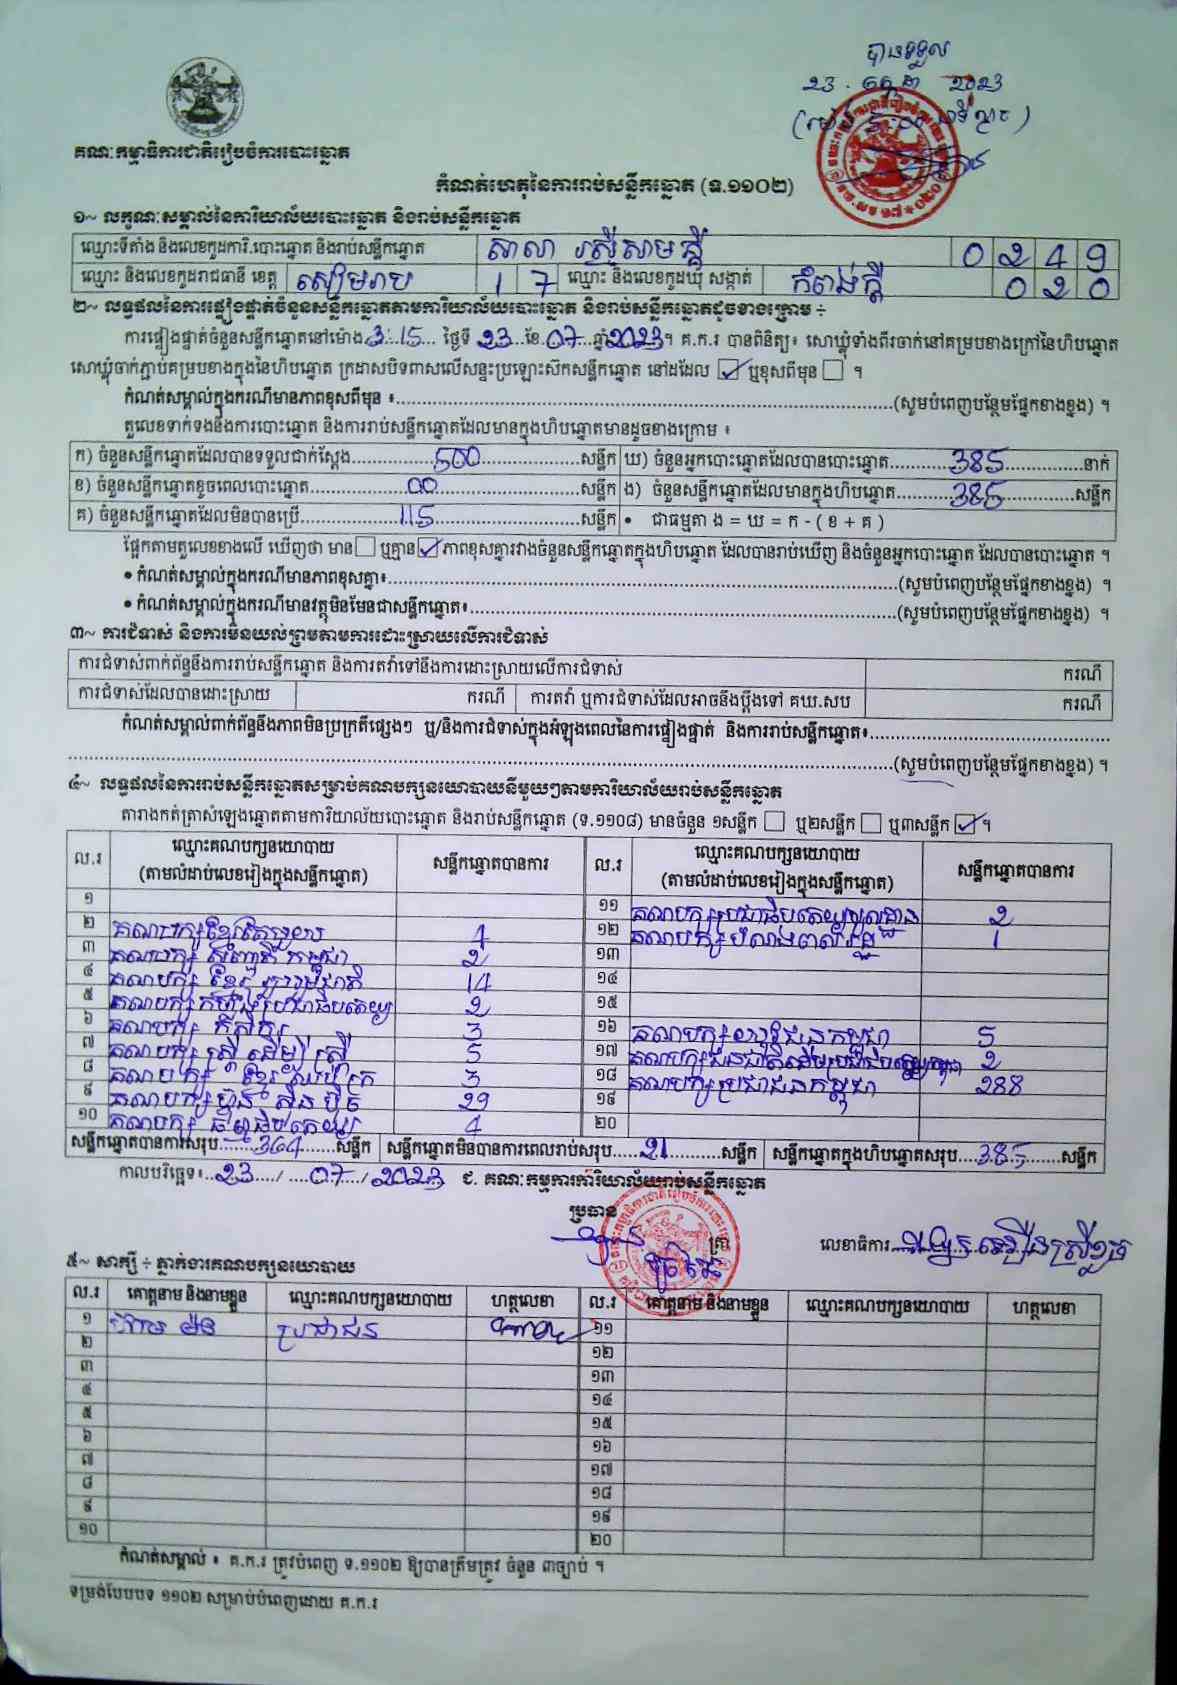 បានទទួល
23 . កក្កដា 2023
គណៈកម្មាធិការជាតិរៀបចំការបោះឆ្នោត
កំណត់ហេតុនៃការរាប់សន្លឹកឆ្នោត (ទ.១១០២)
១~ លក្ខណៈសម្គាល់នៃការិយាល័យបោះឆ្នោត និងរាប់សន្លឹកឆ្នោត
ឈ្មោះទីតាំង និងលេខកូដការិ.បោះឆ្នោត និងរាប់សន្លឹកឆ្នោត សាលា ស្រីសាមគ្គី 0 2 4 9
ឈ្មោះ និងលេខកូដរាជធានី ខេត្ត សៀមរាប 1 7 ឈ្មោះ និងលេខកូដឃុំ សង្កាត់ កំពង់ក្ដី 0 2 0
២~ លទ្ធផលនៃការផ្ទៀងផ្ទាត់ចំនួនសន្លឹកឆ្នោតតាមការិយាល័យបោះឆ្នោត និងរាប់សន្លឹកឆ្នោតដូចខាងក្រោម ÷
ការផ្ទៀងផ្ទាត់ចំនួនសន្លឹកឆ្នោតនៅម៉ោង 3:15 ថ្ងៃទី 23 ខែ 07 ឆ្នាំ 2023 ។ គ.ក.រ បានពិនិត្យ៖ សោឃ្លុំទាំងពីរចាក់នៅគម្របខាងក្រៅនៃហិបឆ្នោត
សោឃ្លុំចាក់ភ្ជាប់គម្របខាងក្នុងនៃហិបឆ្នោត ក្រដាសបិទពាសលើសន្ទះប្រឡោះស៊កសន្លឹកឆ្នោត នៅដដែល ☑ ឬខុសពីមុន ☐ ។
កំណត់សម្គាល់ក្នុងករណីមានភាពខុសពីមុន ៖ (សូមបំពេញបន្ថែមផ្នែកខាងខ្នង) ។
តួលេខទាក់ទងនឹងការបោះឆ្នោត និងការរាប់សន្លឹកឆ្នោតដែលមានក្នុងហិបឆ្នោតមានដូចខាងក្រោម ៖
ក) ចំនួនសន្លឹកឆ្នោតដែលបានទទួលជាក់ស្តែង 500 សន្លឹក ឃ) ចំនួនអ្នកបោះឆ្នោតដែលបានបោះឆ្នោត 385 នាក់
ខ) ចំនួនសន្លឹកឆ្នោតខូចពេលបោះឆ្នោត 00 សន្លឹក ង) ចំនួនសន្លឹកឆ្នោតដែលមានក្នុងហិបឆ្នោត 385 សន្លឹក
គ) ចំនួនសន្លឹកឆ្នោតដែលមិនបានប្រើ 115 សន្លឹក • ជាធម្មតា ង = ឃ = ក - ( ខ + គ )
ផ្អែកតាមតួលេខខាងលើ ឃើញថា មាន ☐ ឬគ្មាន ☑ ភាពខុសគ្នារវាងចំនួនសន្លឹកឆ្នោតក្នុងហិបឆ្នោត ដែលបានរាប់ឃើញ និងចំនួនអ្នកបោះឆ្នោត ដែលបានបោះឆ្នោត ។
• កំណត់សម្គាល់ក្នុងករណីមានភាពខុសគ្នា៖ (សូមបំពេញបន្ថែមផ្នែកខាងខ្នង) ។
• កំណត់សម្គាល់ក្នុងករណីមានវត្ថុមិនមែនជាសន្លឹកឆ្នោត៖ (សូមបំពេញបន្ថែមផ្នែកខាងខ្នង) ។
៣~ ការជំទាស់ និងការមិនយល់ព្រមតាមការដោះស្រាយលើការជំទាស់
ការជំទាស់ពាក់ព័ន្ធនឹងការរាប់សន្លឹកឆ្នោត និងការតវ៉ាទៅនឹងការដោះស្រាយលើការជំទាស់ ករណី
ការជំទាស់ដែលបានដោះស្រាយ ករណី ការតវ៉ា ឬការជំទាស់ដែលអាចនឹងប្តឹងទៅ គឃ.សប ករណី
កំណត់សម្គាល់ពាក់ព័ន្ធនឹងភាពមិនប្រក្រតីផ្សេងៗ ឬ/និងការជំទាស់ក្នុងអំឡុងពេលនៃការផ្ទៀងផ្ទាត់ និងការរាប់សន្លឹកឆ្នោត៖
(សូមបំពេញបន្ថែមផ្នែកខាងខ្នង) ។
៤~ លទ្ធផលនៃការរាប់សន្លឹកឆ្នោតសម្រាប់គណបក្សនយោបាយនីមួយៗតាមការិយាល័យរាប់សន្លឹកឆ្នោត
តារាងកត់ត្រាសំឡេងឆ្នោតតាមការិយាល័យបោះឆ្នោត និងរាប់សន្លឹកឆ្នោត (ទ.១១០៨) មានចំនួន ១សន្លឹក ☐ ឬ២សន្លឹក ☐ ឬ៣សន្លឹក ☑ ។
ល.រ ឈ្មោះគណបក្សនយោបាយ (តាមលំដាប់លេខរៀងក្នុងសន្លឹកឆ្នោត) សន្លឹកឆ្នោតបានការ ល.រ ឈ្មោះគណបក្សនយោបាយ (តាមលំដាប់លេខរៀងក្នុងសន្លឹកឆ្នោត) សន្លឹកឆ្នោតបានការ
១ ១១ គណបក្សប្រជាធិបតេយ្យមូលដ្ឋាន 2
២ គណបក្សខ្មែរតែមួយ 4 ១២ គណបក្សបំណងពលរដ្ឋ 1
៣ គណបក្ស សញ្ជាតិ កម្ពុជា 2 ១៣
៤ គណបក្ស ខ្មែរ រួបរួមជាតិ 14 ១៤
៥ គណបក្ស កម្លាំងប្រជាធិបតេយ្យ 2 ១៥
៦ គណបក្ស កសិករ 3 ១៦ គណបក្សយុវជនកម្ពុជា 5
៧ គណបក្ស ស្ត្រី ដើម្បី ស្ត្រី 5 ១៧ គណបក្សជនជាតិដើមប្រជាធិបតេយ្យកម្ពុជា 2
៨ គណបក្ស ខ្មែរ អភិរក្ស 3 ១៨ គណបក្សប្រជាជនកម្ពុជា 288
៩ គណបក្ស ហ៊្វុនស៊ិនប៉ិច 29 ១៩
១០ គណបក្ស ធម្មាធិបតេយ្យ 4 ២០
សន្លឹកឆ្នោតបានការសរុប 364 សន្លឹក សន្លឹកឆ្នោតមិនបានការពេលរាប់សរុប 21 សន្លឹក សន្លឹកឆ្នោតក្នុងហិបឆ្នោតសរុប 385 សន្លឹក
កាលបរិច្ឆេទ៖ 23 / 07 / 2023 ជ. គណៈកម្មការការិយាល័យរាប់សន្លឹកឆ្នោត
ប្រធាន
ត្រា លេខាធិការ
៥~ សាក្សី ÷ ភ្នាក់ងារគណបក្សនយោបាយ
ល.រ គោត្តនាម និងនាមខ្លួន ឈ្មោះគណបក្សនយោបាយ ហត្ថលេខា ល.រ គោត្តនាម និងនាមខ្លួន ឈ្មោះគណបក្សនយោបាយ ហត្ថលេខា
១ ប្រជាជន ១១
២ ១២
៣ ១៣
៤ ១៤
៥ ១៥
៦ ១៦
៧ ១៧
៨ ១៨
៩ ១៩
១០ ២០
កំណត់សម្គាល់ ៖ គ.ក.រ ត្រូវបំពេញ ទ.១១០២ ឱ្យបានត្រឹមត្រូវ ចំនួន ៣ច្បាប់ ។
ទម្រង់បែបបទ ១១០២ សម្រាប់បំពេញដោយ គ.ក.រ